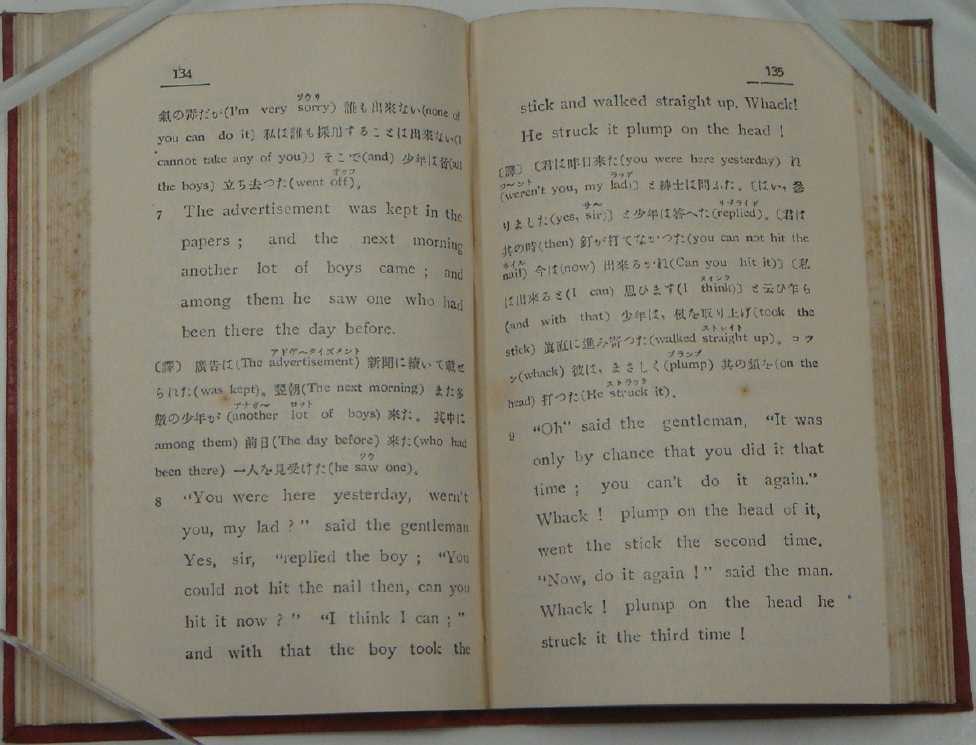 134
ソウリ
氣の毒だが(I'm very sorry) 誰も出來ない(none of
you can do it) 私は誰も採用することは出來ない(I
cannot take any of you)〕 そこで(and) 少年は皆(all
オッフ
the boys) 立ち去つた(went off)。
7 The advertisement was kept in the
papers ; and the next morning
another lot of boys came ; and
among them he saw one who had
been there the day before.
アドヴータイズメント
〔譯〕 廣告は(The advertisement) 新聞に續いて載せ
られた(was kept)。翌朝(The next morning) また多
アナザー ロット
數の少年が (another lot of boys) 來た。 其中に
among them) 前日(The day before) 來た(who had
ソウ
been there) 一人を見受けた(he saw one)。
8 "You were here yesterday, wern't
you, my lad ?" said the gentleman
Yes, sir, "replied the boy ; "You
could not hit the nail then, can you
hit it now ?" "I think I can ;"
and with that the boy took the
135
stick and walked straight up. Whack!
He struck it plump on the head !
〔譯〕〔君は昨日來た(you were here yesterday) れ
ワーント ラッド
(weren't you, my lad)〕と紳士は問ふた。〔はい、參
サー リプライド
りました(yes, sir)〕と少年は答へた(replied)。〔君は
其の時(then) 釘が打てなかつた(you can not hit the
ネイル
nail) 今は(now) 出來るかね(Can you hit it)〕〔私
スィンク
は出來ると(I can) 思ひます(I think)〕と云ひ乍ら
(and with that) 少年は、 杖を取り上げ(took the
ストレイト
stick) 眞直に進み寄つた(walked straight up)。 コツ
プランプ
ン(whack) 彼は、まさしく(plump) 其の頭を(on the
ストラック
head) 打つた(He struck it)。
9 "Oh" said the gentleman, "It was
only by chance that you did it that
time ; you can't do it again."
Whack ! plump on the head of it,
went the stick the second time.
"Now, do it again !" said the man.
Whack ! plump on the head he
struck it the third time !